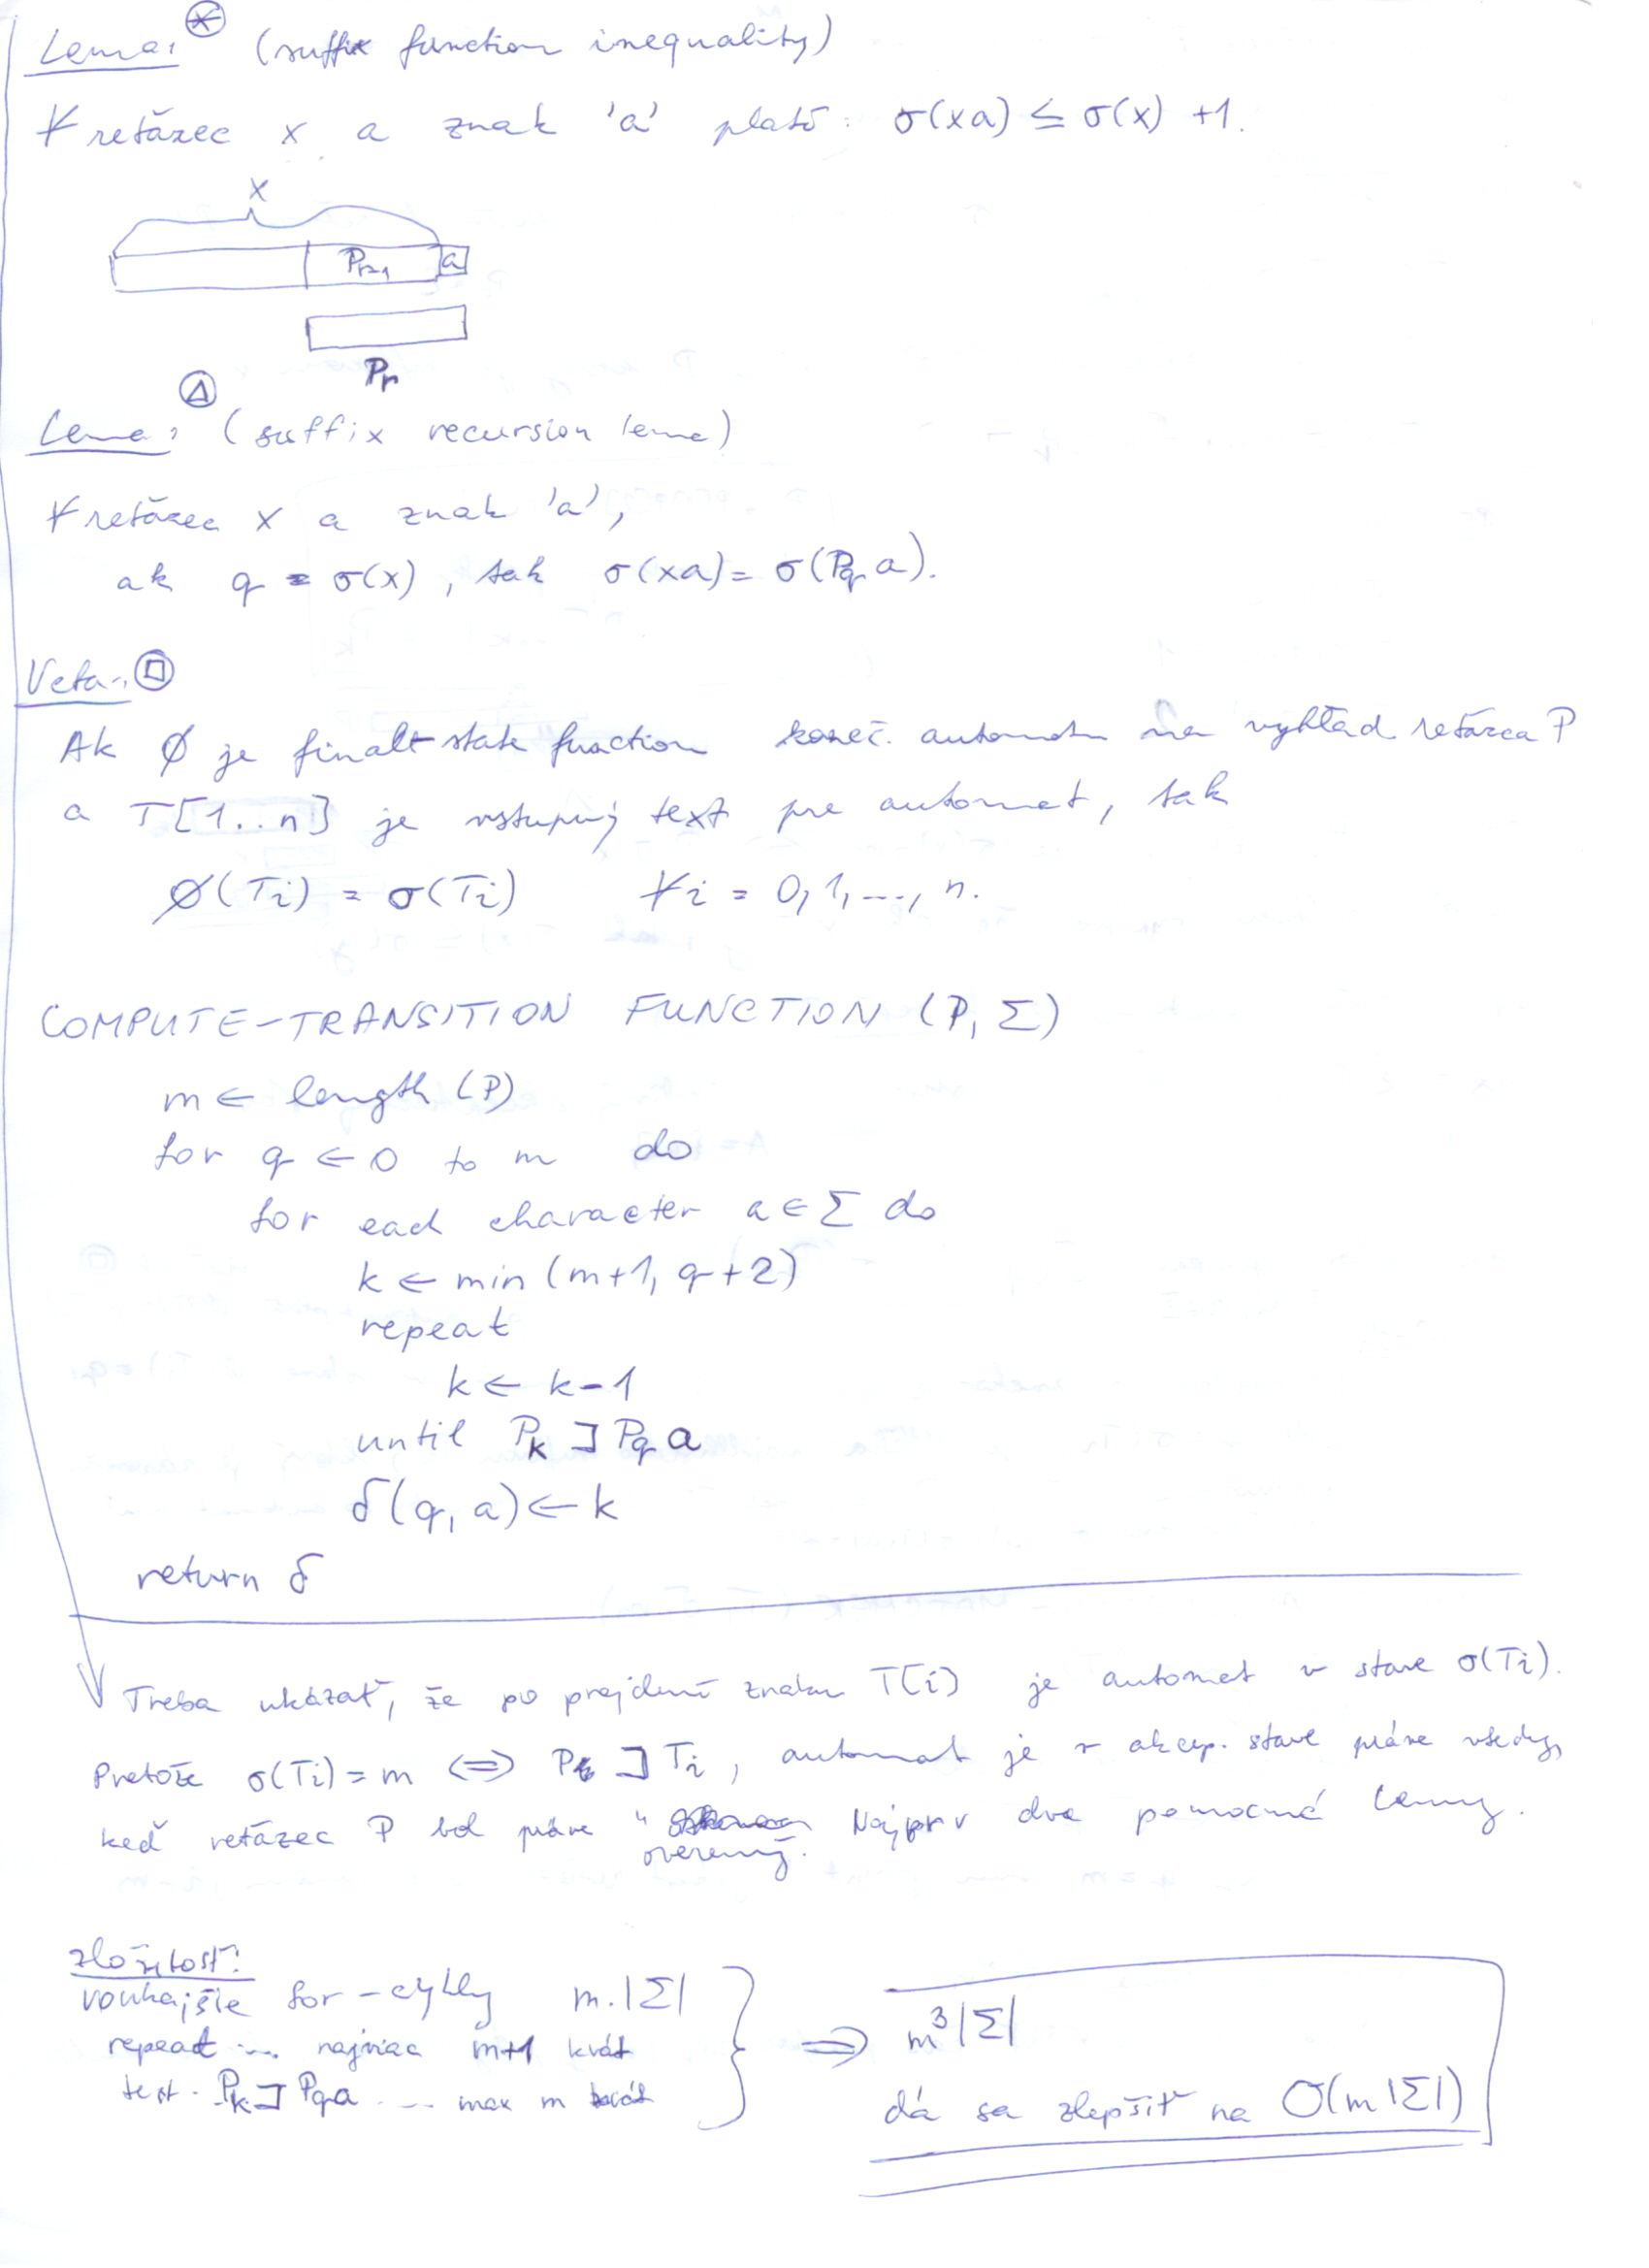 Lema: (suffix function inequality)
∀ reťazec x a znak 'a' platí: σ(xa) ≤ σ(x) +1.
x
Pr-1 a
Pr
Lema: (suffix recursion lema)
∀ reťazec x a znak 'a',
ak q = σ(x), tak σ(xa) = σ(Pq a).
Veta:
Ak Ø je final state function koneč. automatu na vyhľad reťazca P
a T[1..n] je vstupný text pre automat, tak
Ø(Ti) = σ(Ti) ∀i = 0, 1, ..., n.
COMPUTE-TRANSITION FUNCTION (P, Σ)
m ← length (P)
for q ← 0 to m do
for each character a ∈ Σ do
k ← min (m+1, q+2)
repeat
k ← k-1
until Pk ⊐ Pq a
δ(q, a) ← k
return δ
Treba ukázať, že po prejdení znaku T[i] je automat v stave σ(Ti).
Pretože σ(Ti) = m ⟺ P ⊐ Ti, automat je v akcep. stave práve vtedy,
keď reťazec P bol práve overený. Najprv dve pomocné lemy.
zložitosť:
vonkajšie for-cykly m.|Σ|
repeat ... najviac m+1 krát
test Pk ⊐ Pqa ... max m krát
⟹ m³|Σ|
dá sa zlepšiť na O(m|Σ|)